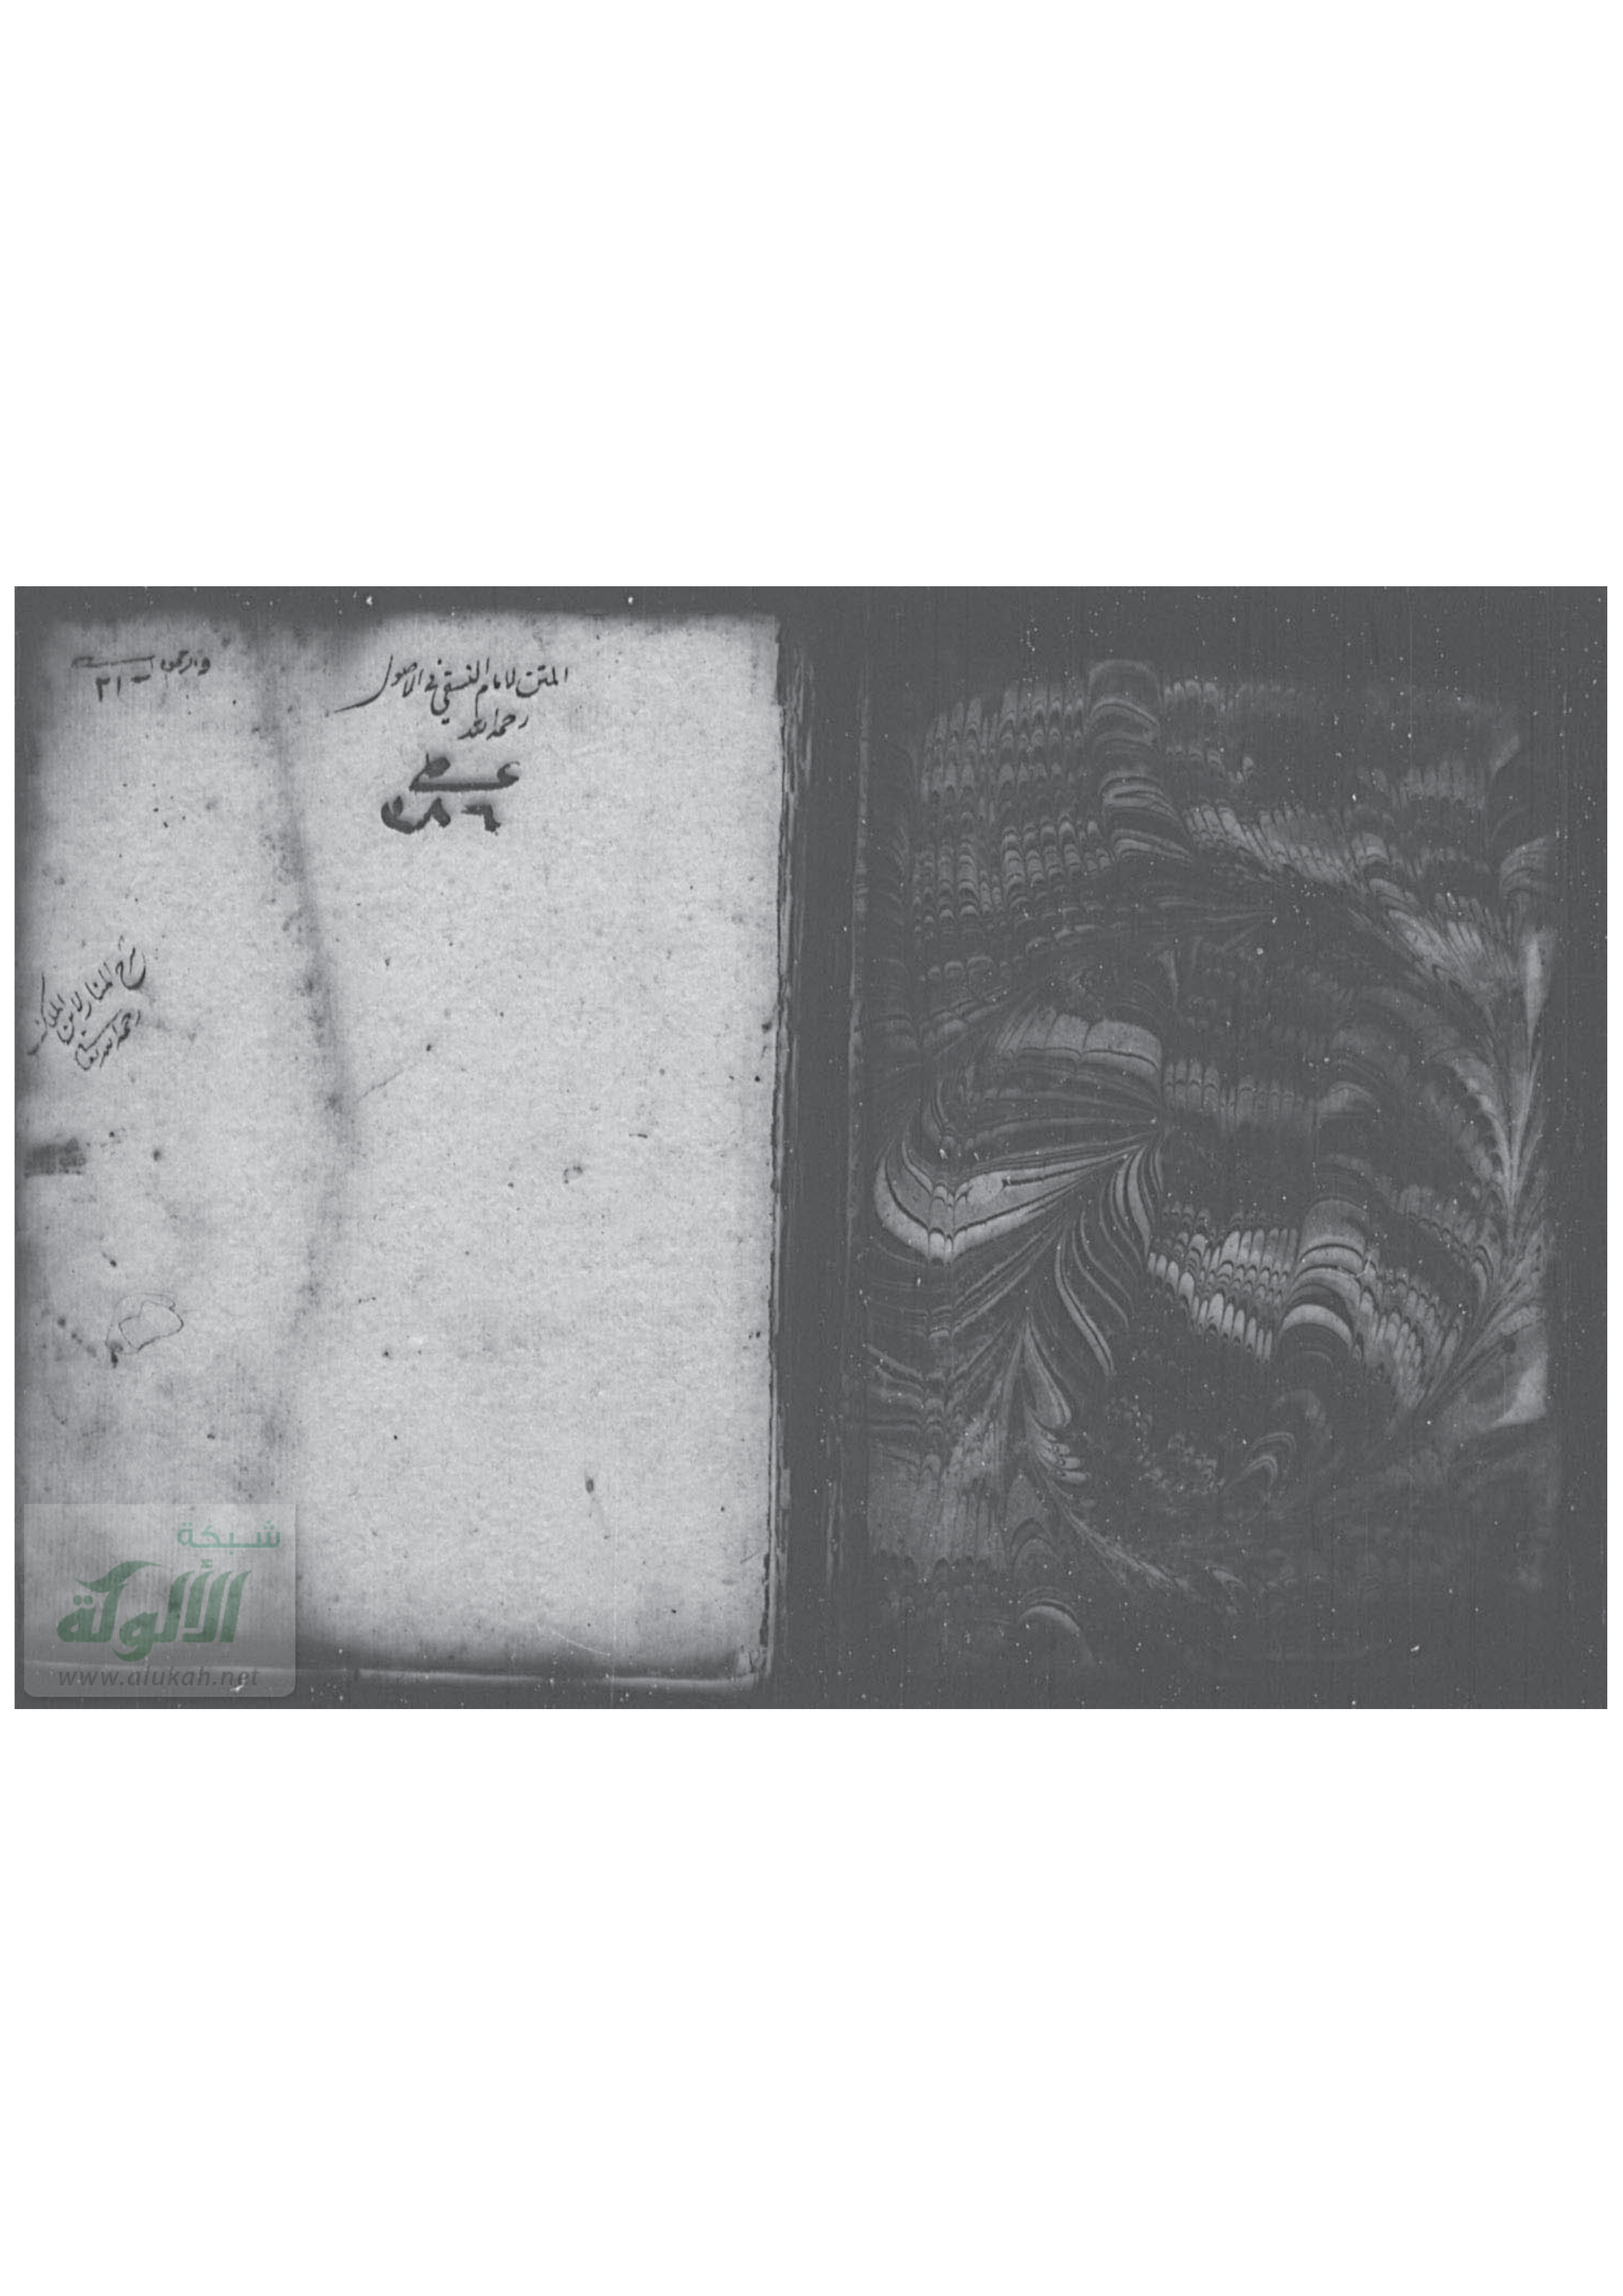 المتن لامام النسفي في الاصول
رحمه الله
٢١
شرح المنار لابن الملك
رحمه الله تعالى
شبكة
الألوكة
www.alukah.net